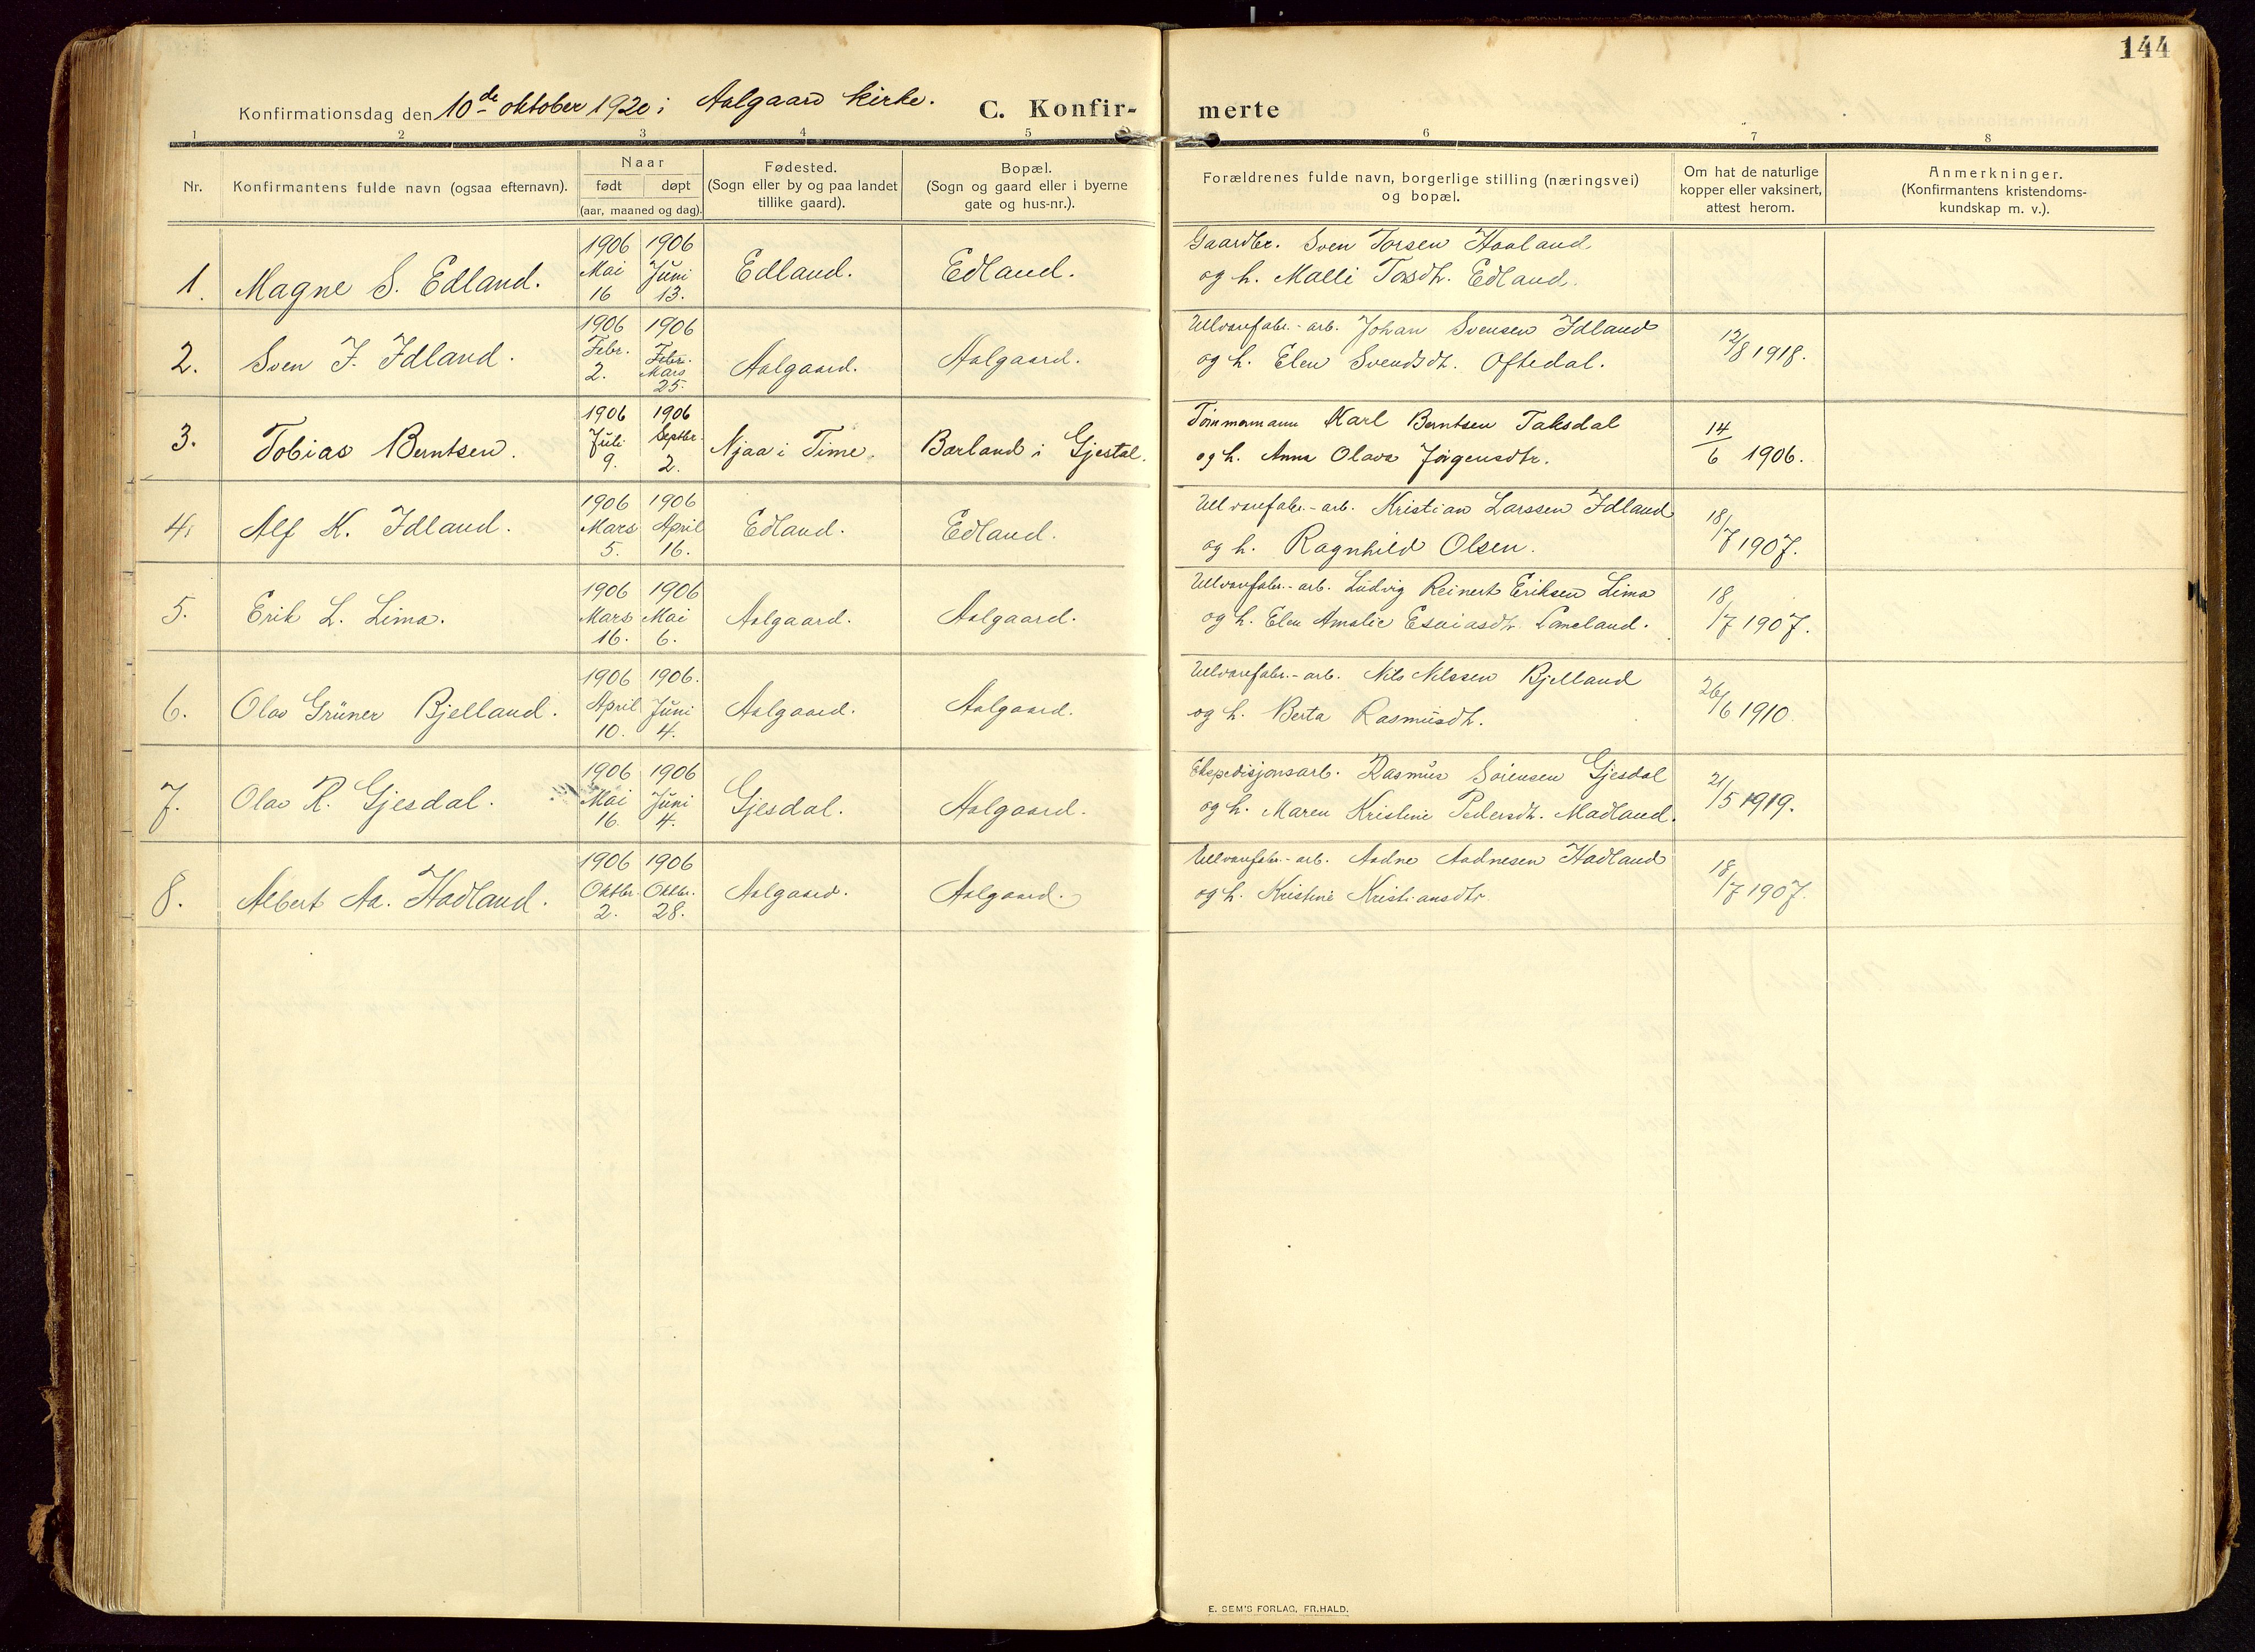 144
Konfirmationsdag den 10de oktober 1920 i Aalgaard kirke. C. Konfir- merte
1 2 3 4 5 6 7 8
Nr. Konfirmantens fulde navn (ogsaa efternavn). Naar født døpt (aar, maaned og dag). Fødested. (Sogn eller by og paa landet tillike gaard). Bopæl. (Sogn og gaard eller i byerne gate og hus-nr.). Forældrenes fulde navn, borgerlige stilling (næringsvei) og bopæl. Om hat de naturlige kopper eller vaksinert, attest herom. Anmerkninger. (Konfirmantens kristendoms- kundskap m. v.).
1. Magne S. Edland. 1906 Mai 16 1906 Juni 13. Edland. Edland. Gaardbr. Sven Torsen Haaland
og h. Malli Torsdtr. Edland.
2. Sven J. Idland. 1906 Febr. 2. 1906 Febr. Mars 25. Aalgaard. Aalgaard. Ullvarefabr.-arb. Johan Svensen Idland
og h. Elen Svendsdtr. Oftedal. 12/8 1918.
3. Tobias Berntsen. 1906 Juli 9. 1906 Septbr. 2. Njaa i Time. Bærland i Gjestal. Tømmermann Karl Berntsen Taksdal
og h. Anna Olava Jørgensdtr. 14/6 1906.
4. Alf K. Idland. 1906 Mars 5. 1906 April 16. Edland. Edland. Ullvarefabr.-arb. Kristian Larssen Idland
og h. Ragnhild Olsen. 18/7 1907.
5. Erik L. Lima. 1906 Mars 16. 1906 Mai 6. Aalgaard. Aalgaard. Ullvarefabr.-arb. Ludvig Reinert Eriksen Lima
og h. Elen Amalie Esaiasdtr. Lomeland. 18/7 1907.
6. Olav Grüner Bjelland. 1906 April 10. 1906. Juni 4. Aalgaard. Aalgaard. Ullvarefabr.-arb. Nils Nilssen Bjelland
og h. Berta Rasmusdtr. 26/6 1910.
7. Olav R. Gjesdal. 1906 Mai 16. 1906 Juni 4. Gjesdal. Aalgaard. Ekspedisjonsarb. Rasmus Sørensen Gjesdal
og h. Maren Kristine Pedersdtr. Madland. 21/5 1919.
8. Albert Aa. Hadland. 1906 Oktbr. 2. 1906 Oktbr. 28. Aalgaard. Aalgaard. Ullvarefabr.-arb. Aadne Aadnesen Hadland
og h. Kristine Kristiansdtr. 18/7 1907.
E. SEM'S FORLAG, FR.HALD.